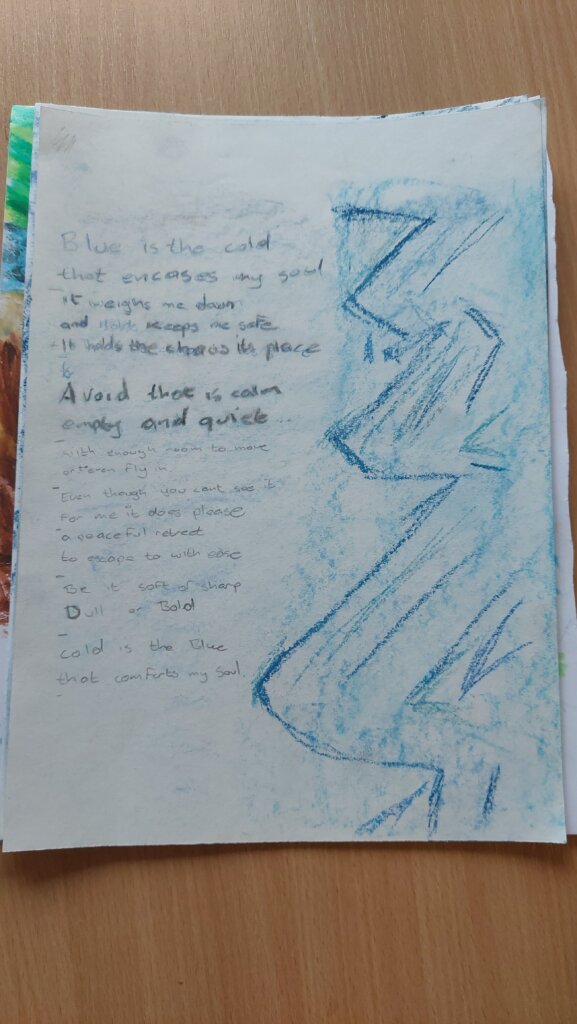 Blue is the cold
that encases my soul
it weighs me down
and keeps me safe
It holds the chaos its place
&
Avoid that is calm
empty and quiet...
with enough room to move
or even fly in
Even though you cant see it
For me it does please
a peaceful retreet
to escape to with ease
Be it soft or sharp
Dull or Bold
cold is the Blue
that comforts my soul.